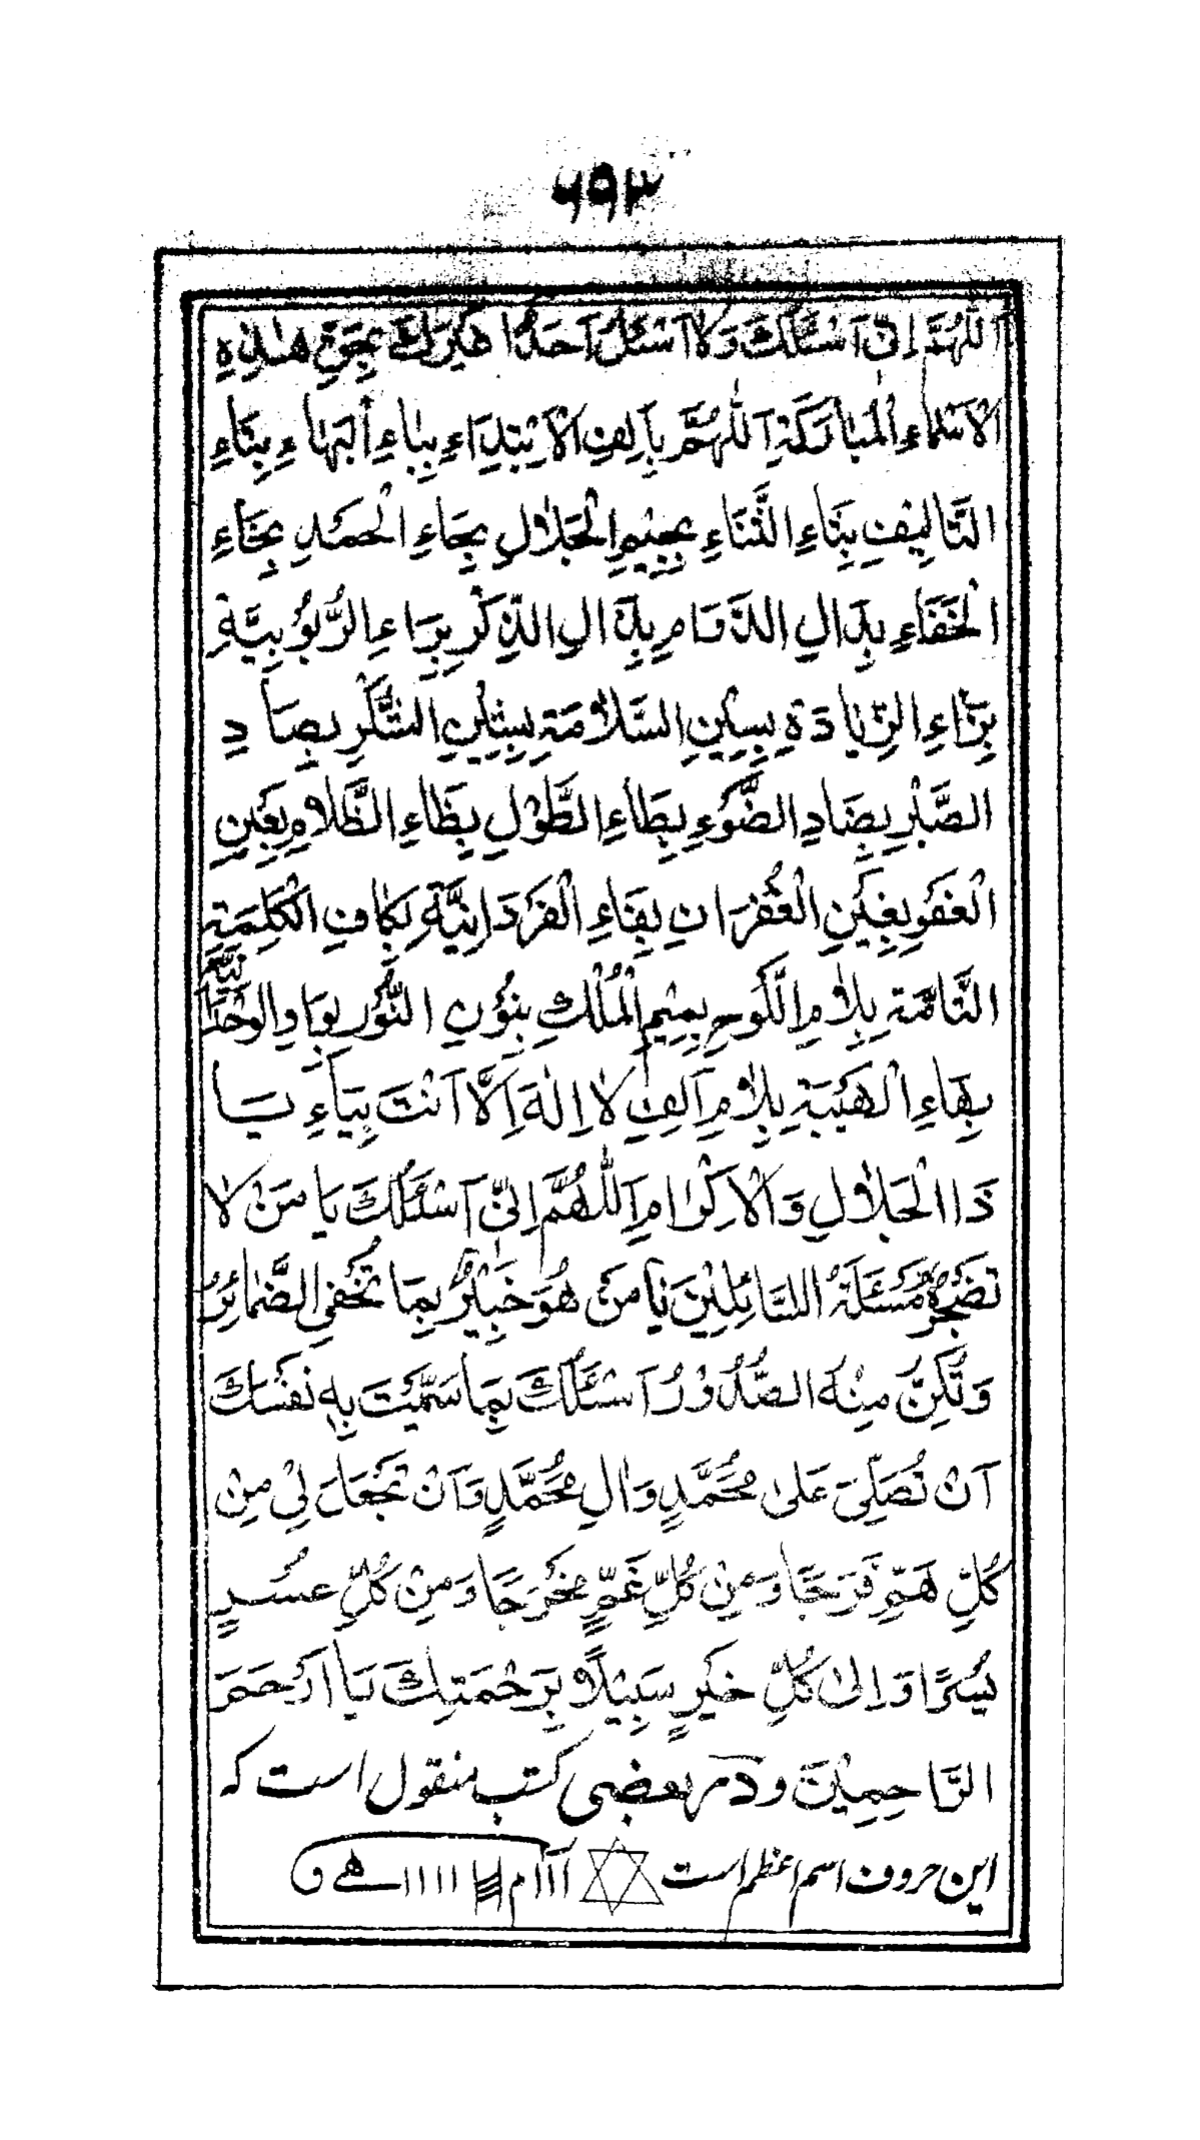 ۶۹۳
اَللّٰهُمَّ اِنّی اَسْئَلُكَ وَلا اَسْئَلُ اَحَدًا غَیرَكَ بِحَقِّ هٰذِهِ
الْاَسْمٰاءِ الْمُبٰارَكَةِ اَللّٰهُمَّ بِاَلِفِ الْاِبْتِدَاءِ بِبٰاءِ اْلبَهٰاءِ بِتَاءِ
التَّالِیْفِ بِثَاءِ الثَّنَاءِ بِجِیْمِ الْجَلٰالِ بِحَاءِ الْحَمْدِ بِخَاءِ
الْخَفَاءِ بِدَالِ الدَّوَامِ بِذَالِ الذِّكْرِ بِرَاءِ الرُّبُوْبِیَّةِ
بِزَاءِ الزِّیَادَةِ بِسِیْنِ السَّلٰامَةِ بِشِیْنِ الشُّكْرِ بِصَادِ
الصَّبْرِ بِضَادِ الضَّوْءِ بِطَاءِ الطَّوْلِ بِظَاءِ الظَّلٰامِ بِعَیْنِ
الْعَفْوِ بِغَیْنِ الْغُفْرَانِ بِفَاءِ الْفَرْدَانِیَّةِ بِكٰافِ الْكَلِمَةِ
التَّامَّةِ بِلٰامِ اللَّوْحِ بِمِیْمِ الْمُلْكِ بِنُوْنِ النُّوْرِ بِوَاوِ الْوَحْدَانِیَّةِ
بِهَاءِ الْهَیْبَةِ بِلٰامِ اَلِفِ لٰا اِلٰهَ اِلَّا اَنْتَ بِیَاءِ یَا
ذَا الْجَلٰالِ وَالْاِكْرٰامِ اَللّٰهُمَّ اِنّیْ اَسْئَلُكَ یَا مَنْ لٰا
تُضْجِرُهُ مَسْئَلَةُ السَّائِلِیْنَ یَا مَنْ هُوَ خَبِیْرٌ بِمَا تُخْفِی الضَّمٰائِرُ
وَ تُكِنُّ مِنْهُ الصُّدُوْرُ اَسْئَلُكَ بِمَا سَمَّیْتَ بِهِ نَفْسَكَ
اَنْ تُصَلِّیَ عَلٰی مُحَمَّدٍ وَاٰلِ مُحَمَّدٍ وَاَنْ تَجْعَلَ لِیْ مِنْ
كُلِّ هَمٍّ فَرَجًا وَمِنْ كُلِّ غَمٍّ مَخْرَجًا وَمِنْ كُلِّ عُسْرٍ
یُسْرًا وَ اِلٰی كُلِّ خَیْرٍ سَبِیْلًا بِرَحْمَتِكَ یَا اَرْحَمَ
الرَّاحِمِیْنَ و در بعضی کتب منقول است که
این حروف اسم اعظم است